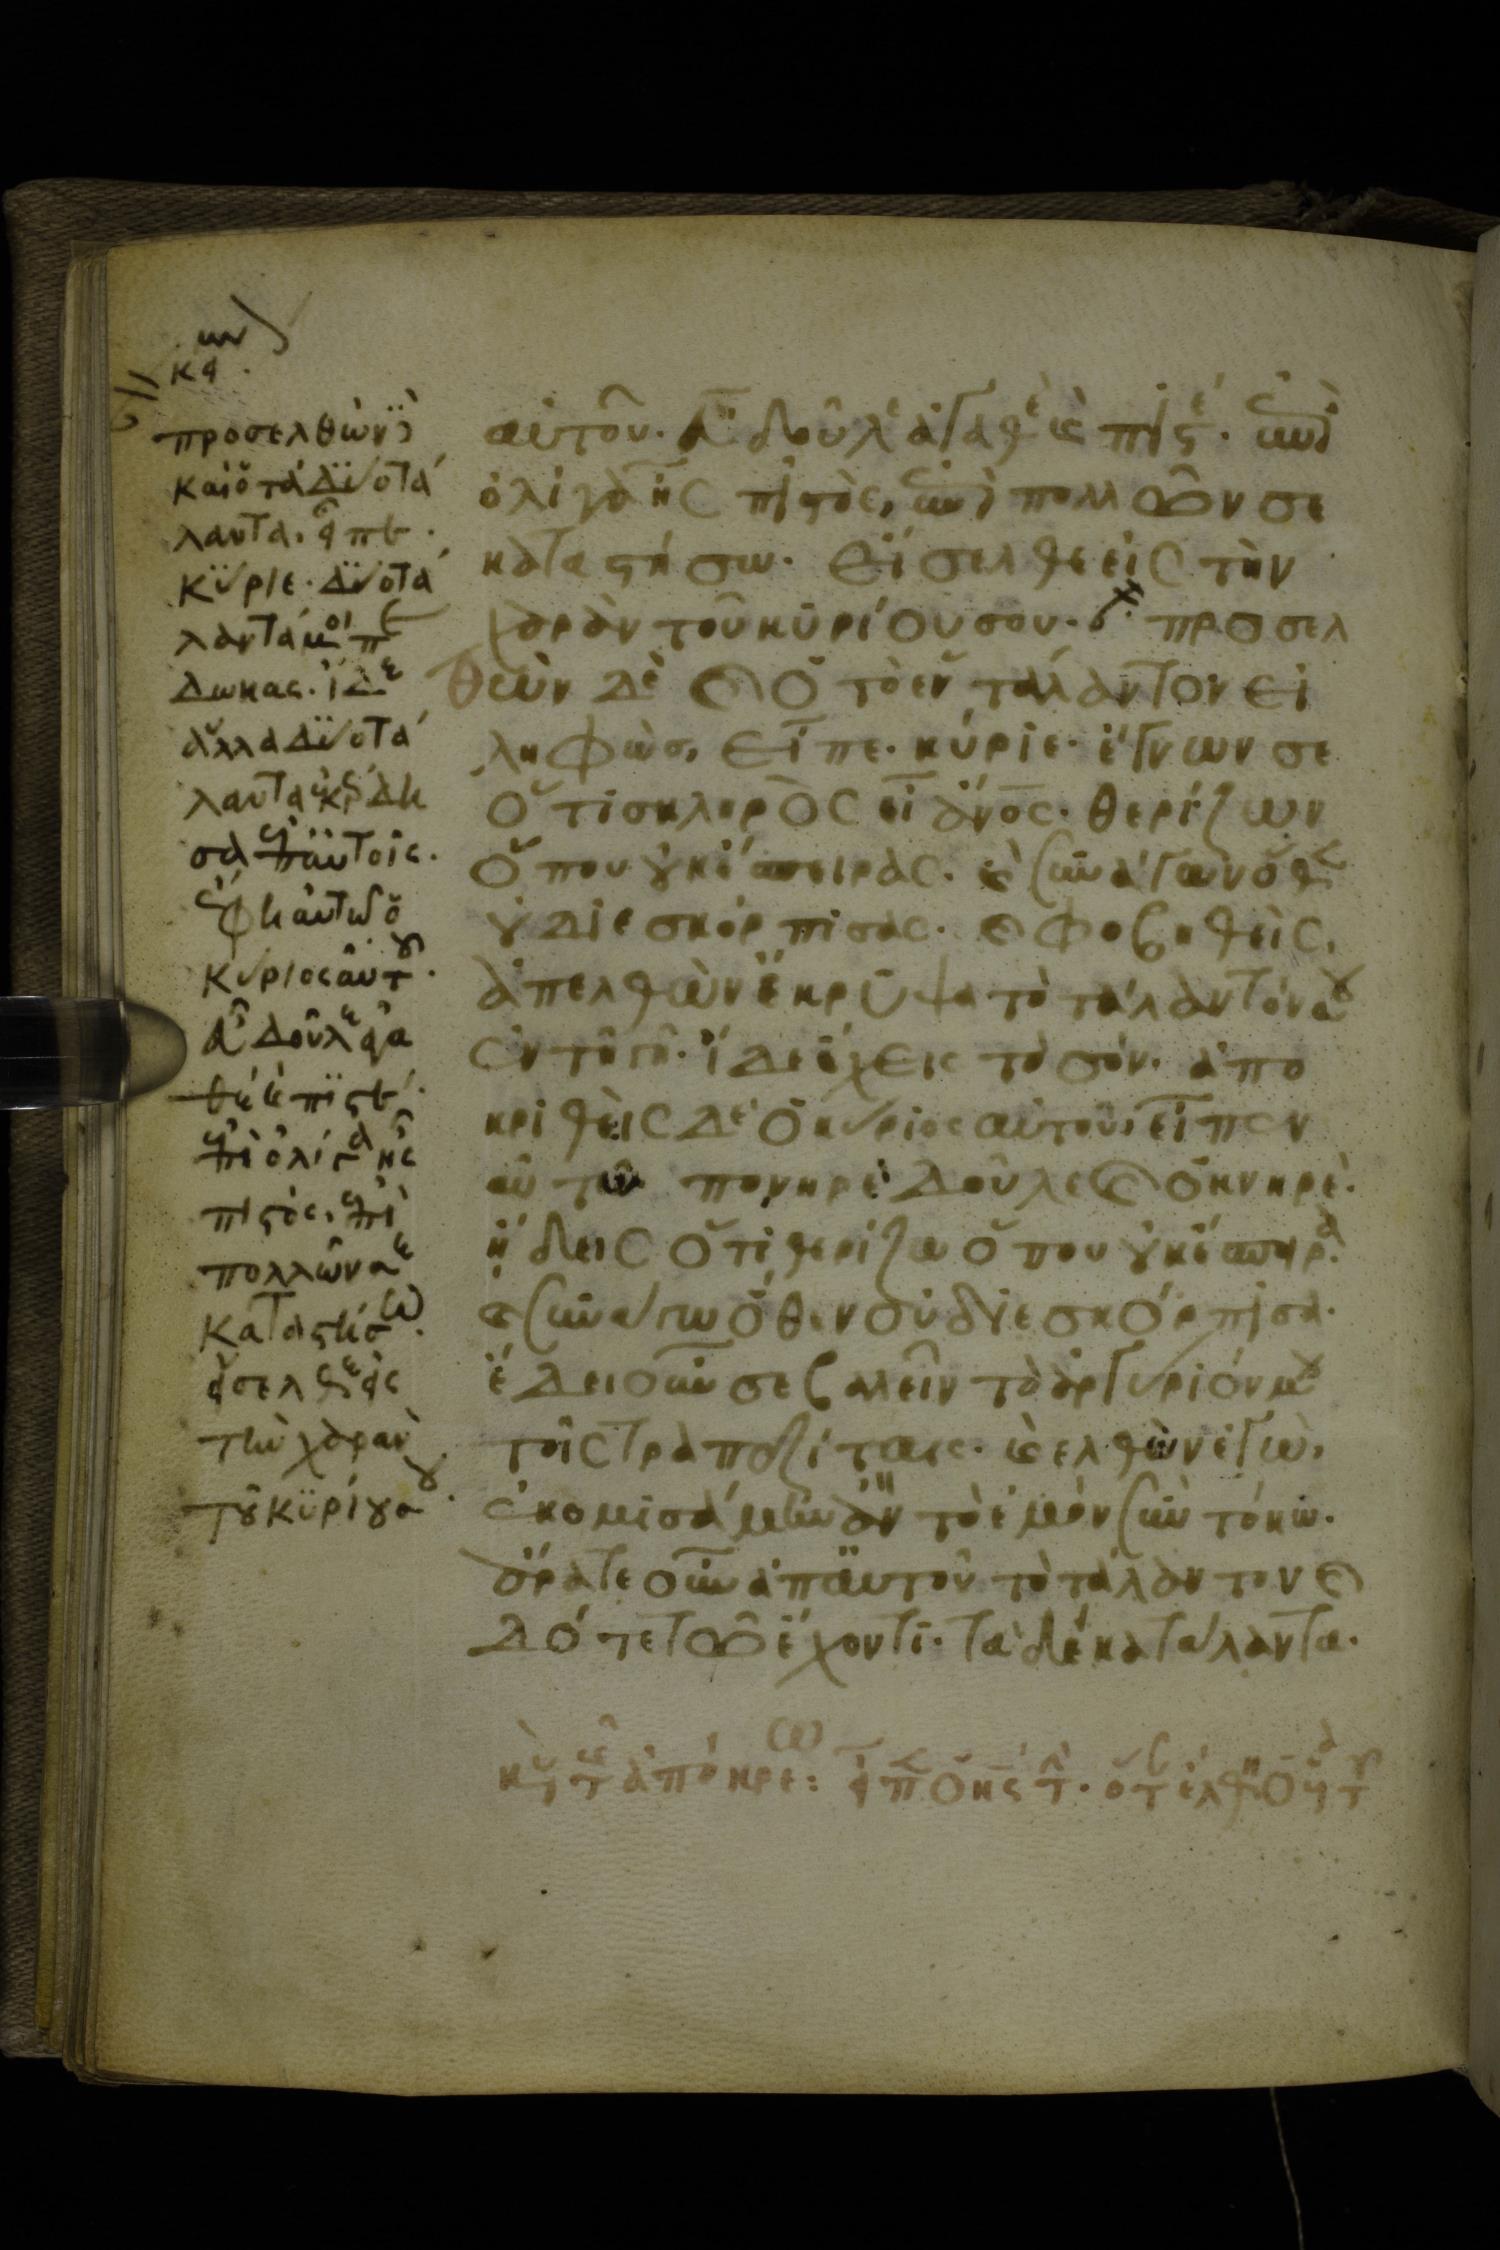 κϛ
προσελθὼν
καὶ ὁ τὰ δύο τά
λαντα. εἶπε.
κύριε. δύο τά
λαντά μοι π
δωκας. ἴδε
ἄλλα δύο τά
λαντα ἐκέρδη
σα ἐπ αὐτοῖς.
ἔφη αὐτῶ ὁ
κύριος αὐτοῦ.
εὖ δοῦλε ἀγα
θὲ καὶ πιστέ.
ἐπὶ ὀλίγα ἦς
πιστὸς, ἐπὶ
πολλῶν σε
καταστήσω.
εἴσελθε εἰς
τὴν χαρὰν
τοῦ κυρίου σου.
αὐτοῦ. εὖ δοῦλε ἀγαθὲ καὶ πιστέ. ἐπὶ
ὀλίγα ἦς πιστὸς, ἐπὶ πολλῶν σε
καταστήσω. εἴσελθε εἰς τὴν
χαρὰν τοῦ κυρίου σου. προσελ
θὼν δὲ καὶ ὁ τὸ ἓν τάλαντον εἰ
ληφὼς, εἶπε. κύριε. ἔγνων σε
ὅτι σκληρὸς εἶ ἄνος. θερίζων
ὅπου οὐκ ἔσπειρας. καὶ συνάγων ὅθεν
οὐ διεσκόρπισας. καὶ φοβηθεὶς,
ἀπελθὼν ἔκρυψα τὸ τάλαντόν σου
ἐν τῆ γῆ. ἴδε ἔχεις τὸ σόν. ἀπο
κριθεὶς δὲ ὁ κύριος αὐτοῦ, εἶπεν
αὐτῶ. πονηρὲ δοῦλε καὶ ὀκνηρὲ.
ἤδεις ὅτι θερίζω ὅπου οὐκ ἔσπειρα.
καὶ συνάγω ὅθεν οὐ διεσκόρπισα.
ἔδει οὖν σε βαλεῖν τὸ ἀργύριόν μου
τοῖς τραπεζίταις. καὶ ἐλθὼν ἐγὼ,
ἐκομισάμην ἂν τὸ ἐμὸν σὺν τόκω.
ἄρατε οὖν ἀπ αὐτοῦ τὸ τάλαντον καὶ
δότε τῶ ἔχοντι τὰ δέκα τάλαντα.